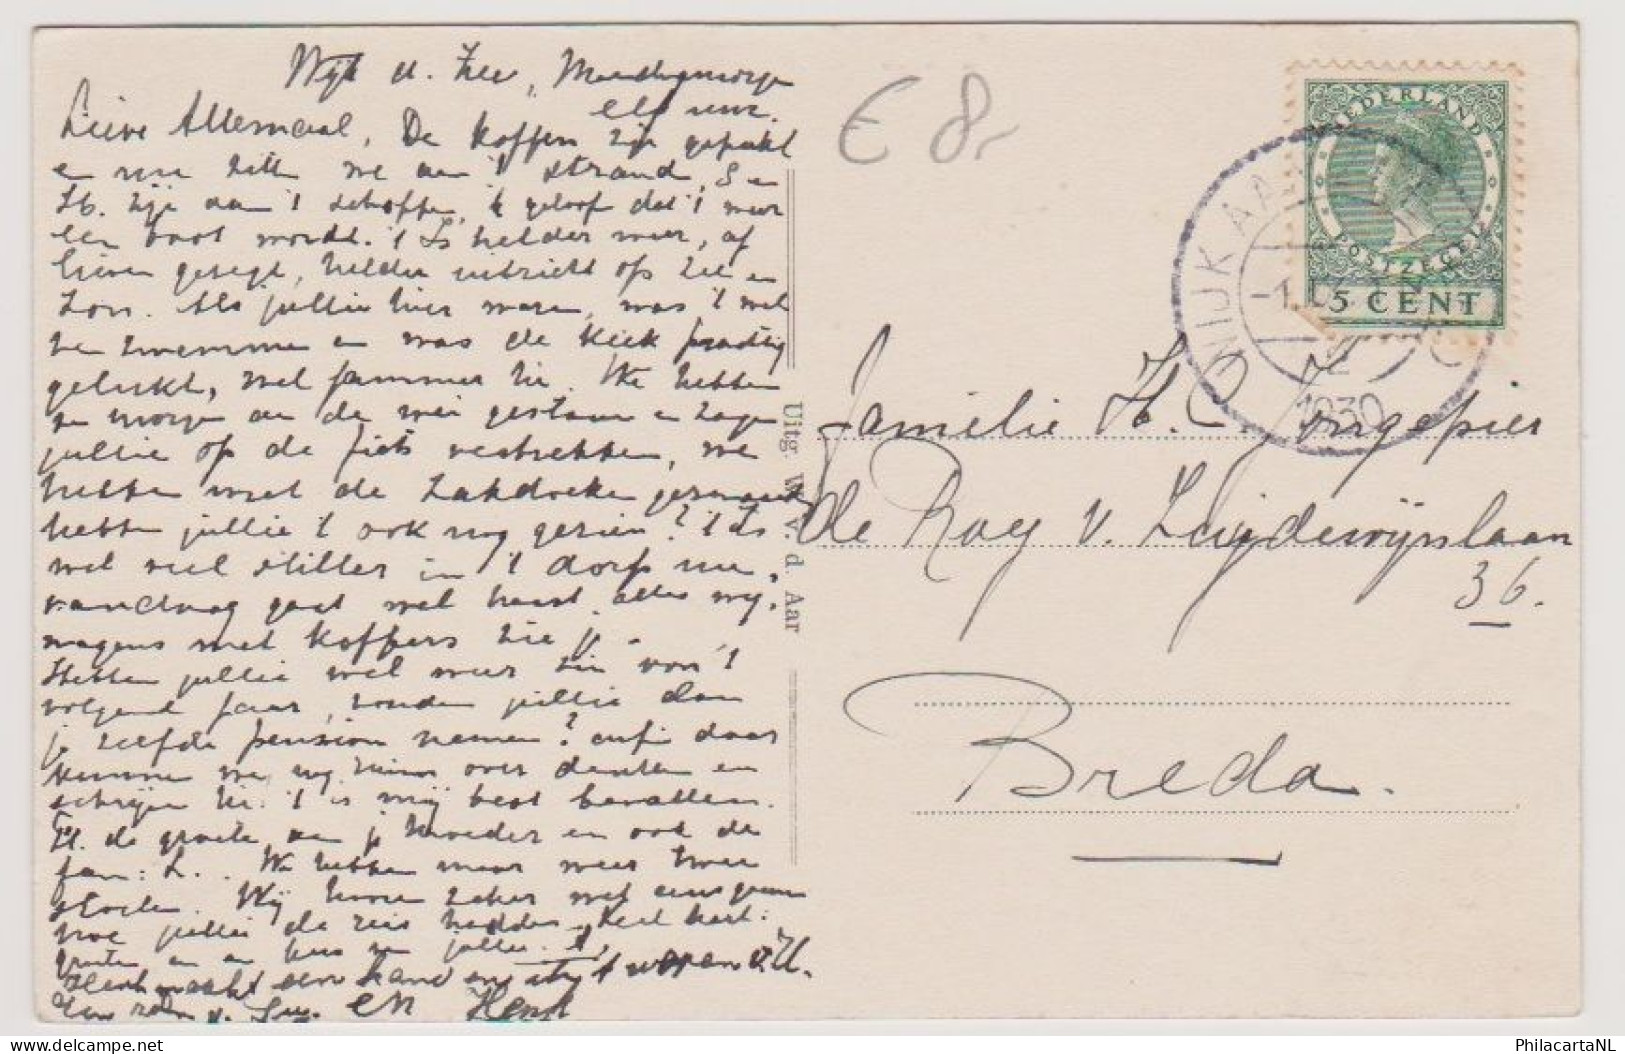 Wijk a. Zee, Maandagmorge
elf uur.
Lieve Allemaal, De koffers zijn gepakt
en nu zitten we aan 't strand, S en
H. zijn aan 't scheppen, ik geloof dat 't weer
een boot wordt. 't Is helder weer, of
liever gezegd, helder uitzicht op zee en
zon. Als jullie hier waren, was 't wel
zwemmen en was de kiek prachtig
gelukt, wel jammer hè. We hebben
morge aan de wei gestaan en zagen
jullie op de fiets vertrekken, we
hebben met de zakdoeken gezwaaid,
hebben jullie 't ook nog gezien? 't Is
wel veel stiller in 't dorp nu,
vandaag gaat wel haast alles weg,
wagens met koffers zie je.
Hebben jullie wel weer zin voor 't
volgend jaar, zouden jullie dan
je zelfde pension nemen? enfin daar
kunnen we nog eens over denken en
schrijven hè. 't is mij best bevallen.
H. de groeten aan je moeder en ook de
fam: L.. We hebben maar weer twee
stoelen. Wij horen zeker wel eens gauw
hoe jullie de reis hadden, heel hart.
groeten en een kus van jullie
Henk maakt een hand en
Een zoen v. en Henk
€ 8,-
NEDERLAND
POSTZEGEL
5 CENT
WIJK AAN ZEE
1930
Familie H. C. Jongepier
de Roy v. Zuijdewijnlaan
36.
Breda.
Uitg. W. v. d. Aar
PhilacartaNL